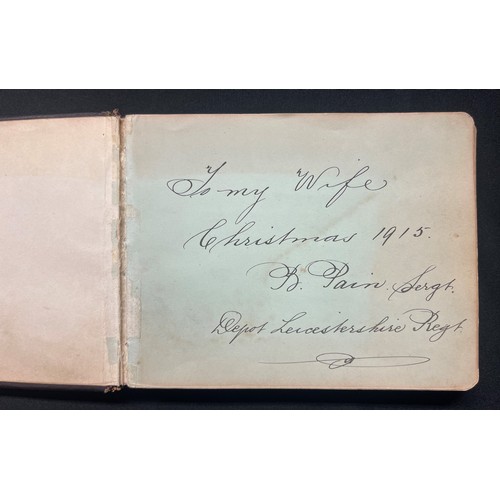 To my Wife
Christmas 1915.
B. Pain. Sergt.
Depot Leicestershire Regt.